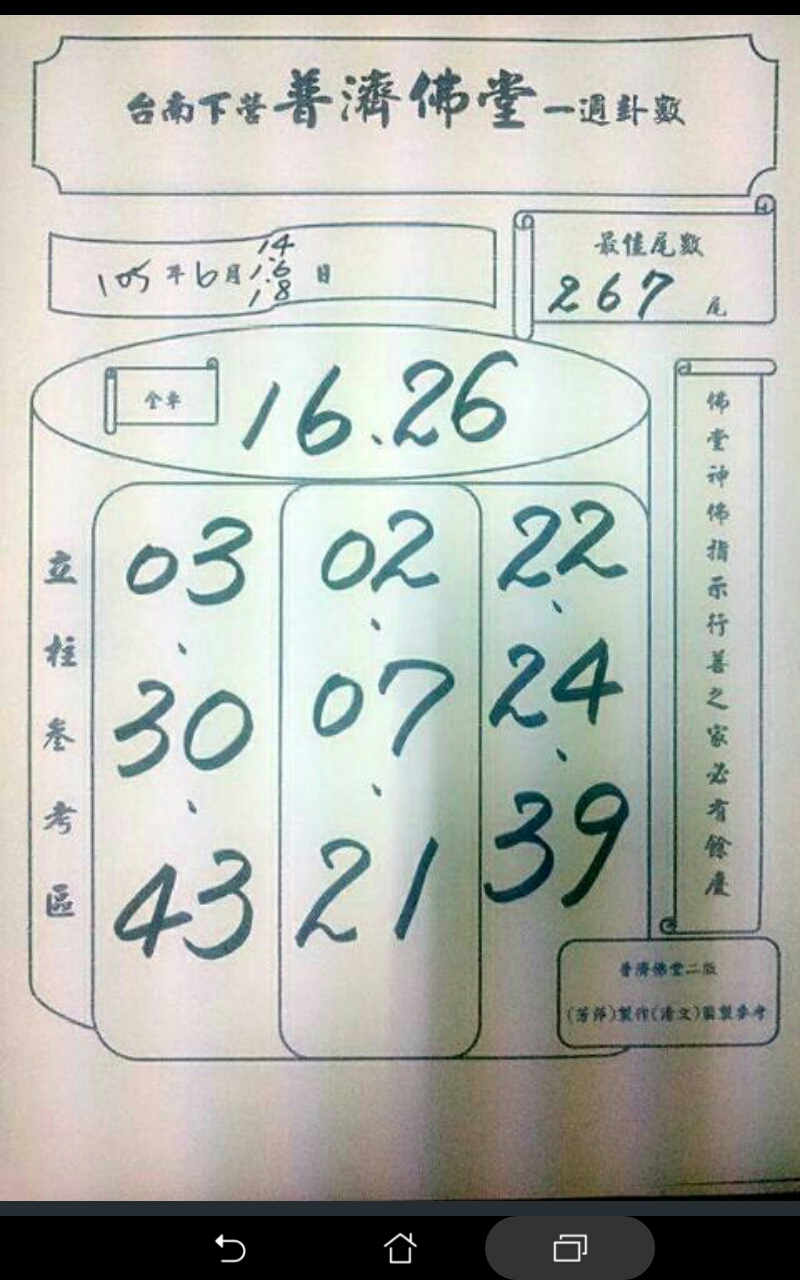 台南下營普濟佛堂一週卦數
105年6月14.16.18日
最佳尾數
267尾
全車
16.26
立柱參考區
03、30、43
02、07、21
22、24、39
佛堂神佛指示行善之家必有餘慶
普濟佛堂二版
(芳萍)製作(清文)監製參考